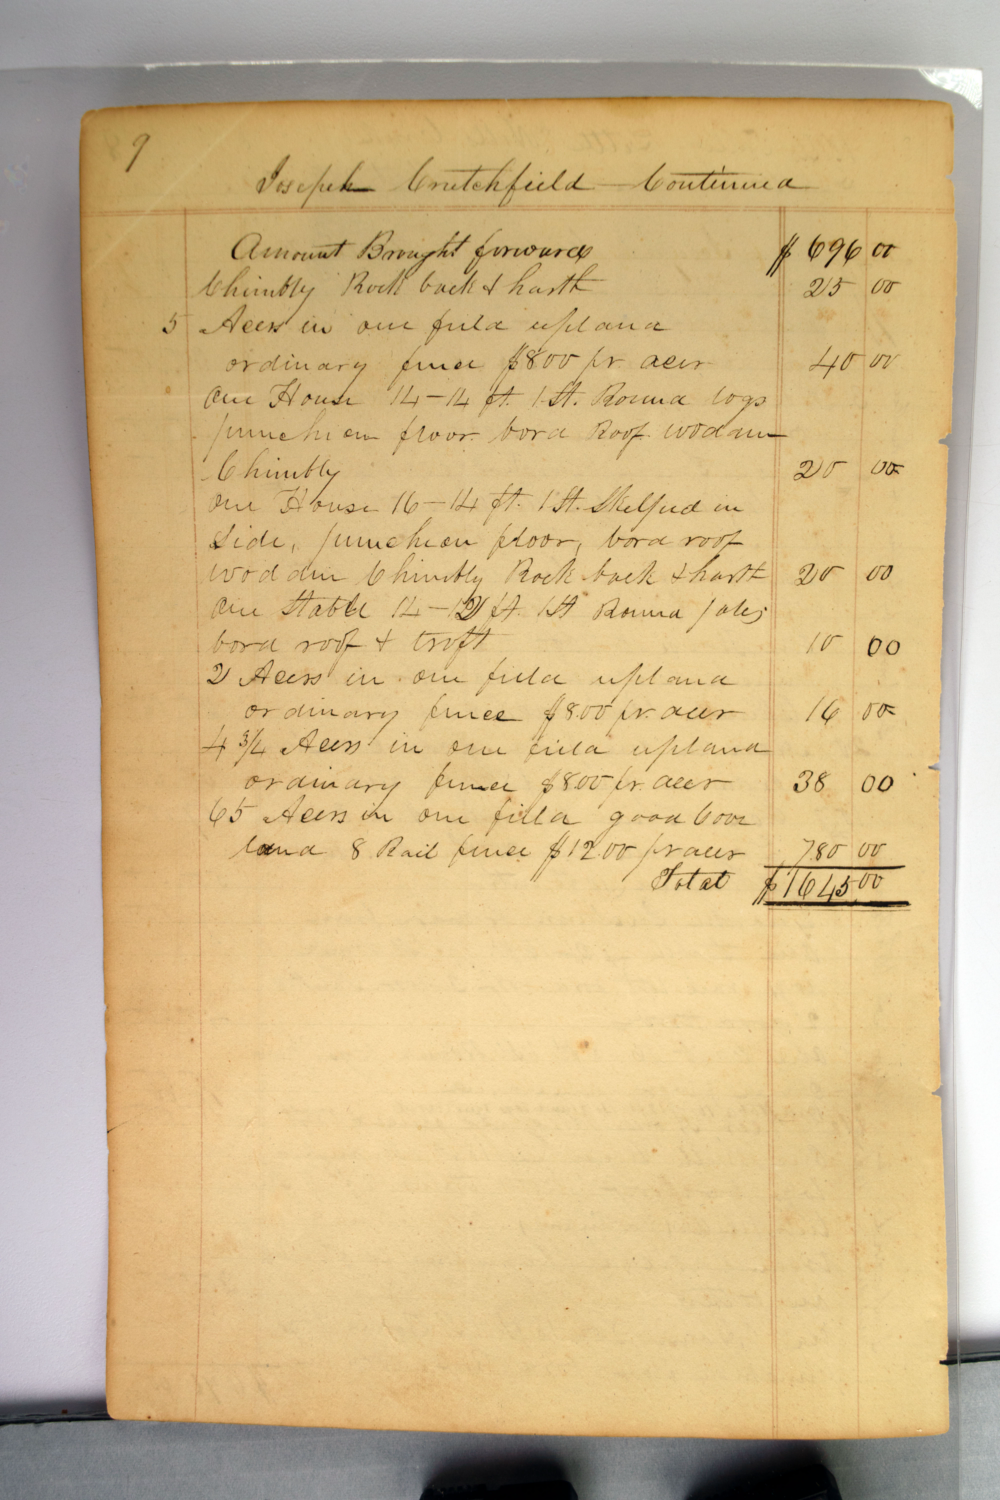 9
Joseph Crutchfield Continued
Amount Brought forward $696 00
Chimbly Rock back & harth 25 00
5 Acers in one field upland
ordinary fence $8 00 pr acer 40 00
one House 14-14 ft. 1 St. Round logs
puncheon floor bord Roof wodden
Chimbly 20 00
one House 16-14 ft. 1 St. Skelped in
side, puncheon floor, bord roof
wodden Chimbly Rock back & harth 20 00
one Stable 14-12 ft. 1 St Round poles
bord roof & troft 10 00
2 Acers in one field upland
ordinary fence $8.00 pr. acer 16 00
4 3/4 Acers in one field upland
ordinary fence $8.00 pr. acer 38 00
65 Acers in one field good Cove
land 8 Rail fence $12 00 pr acer 780 00
Total $1645.00